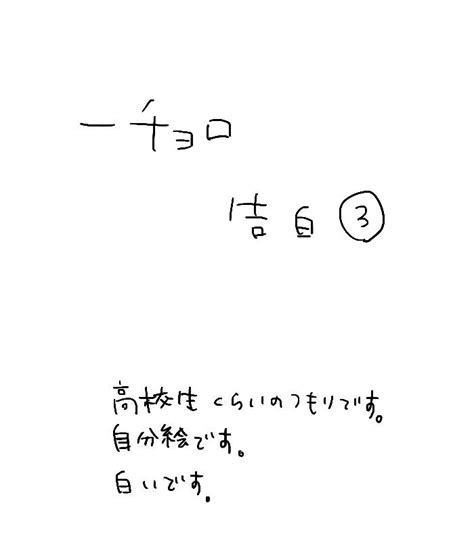 一チョロ
告白③
高校生くらいのつもりです。
自分絵です。
白いです。